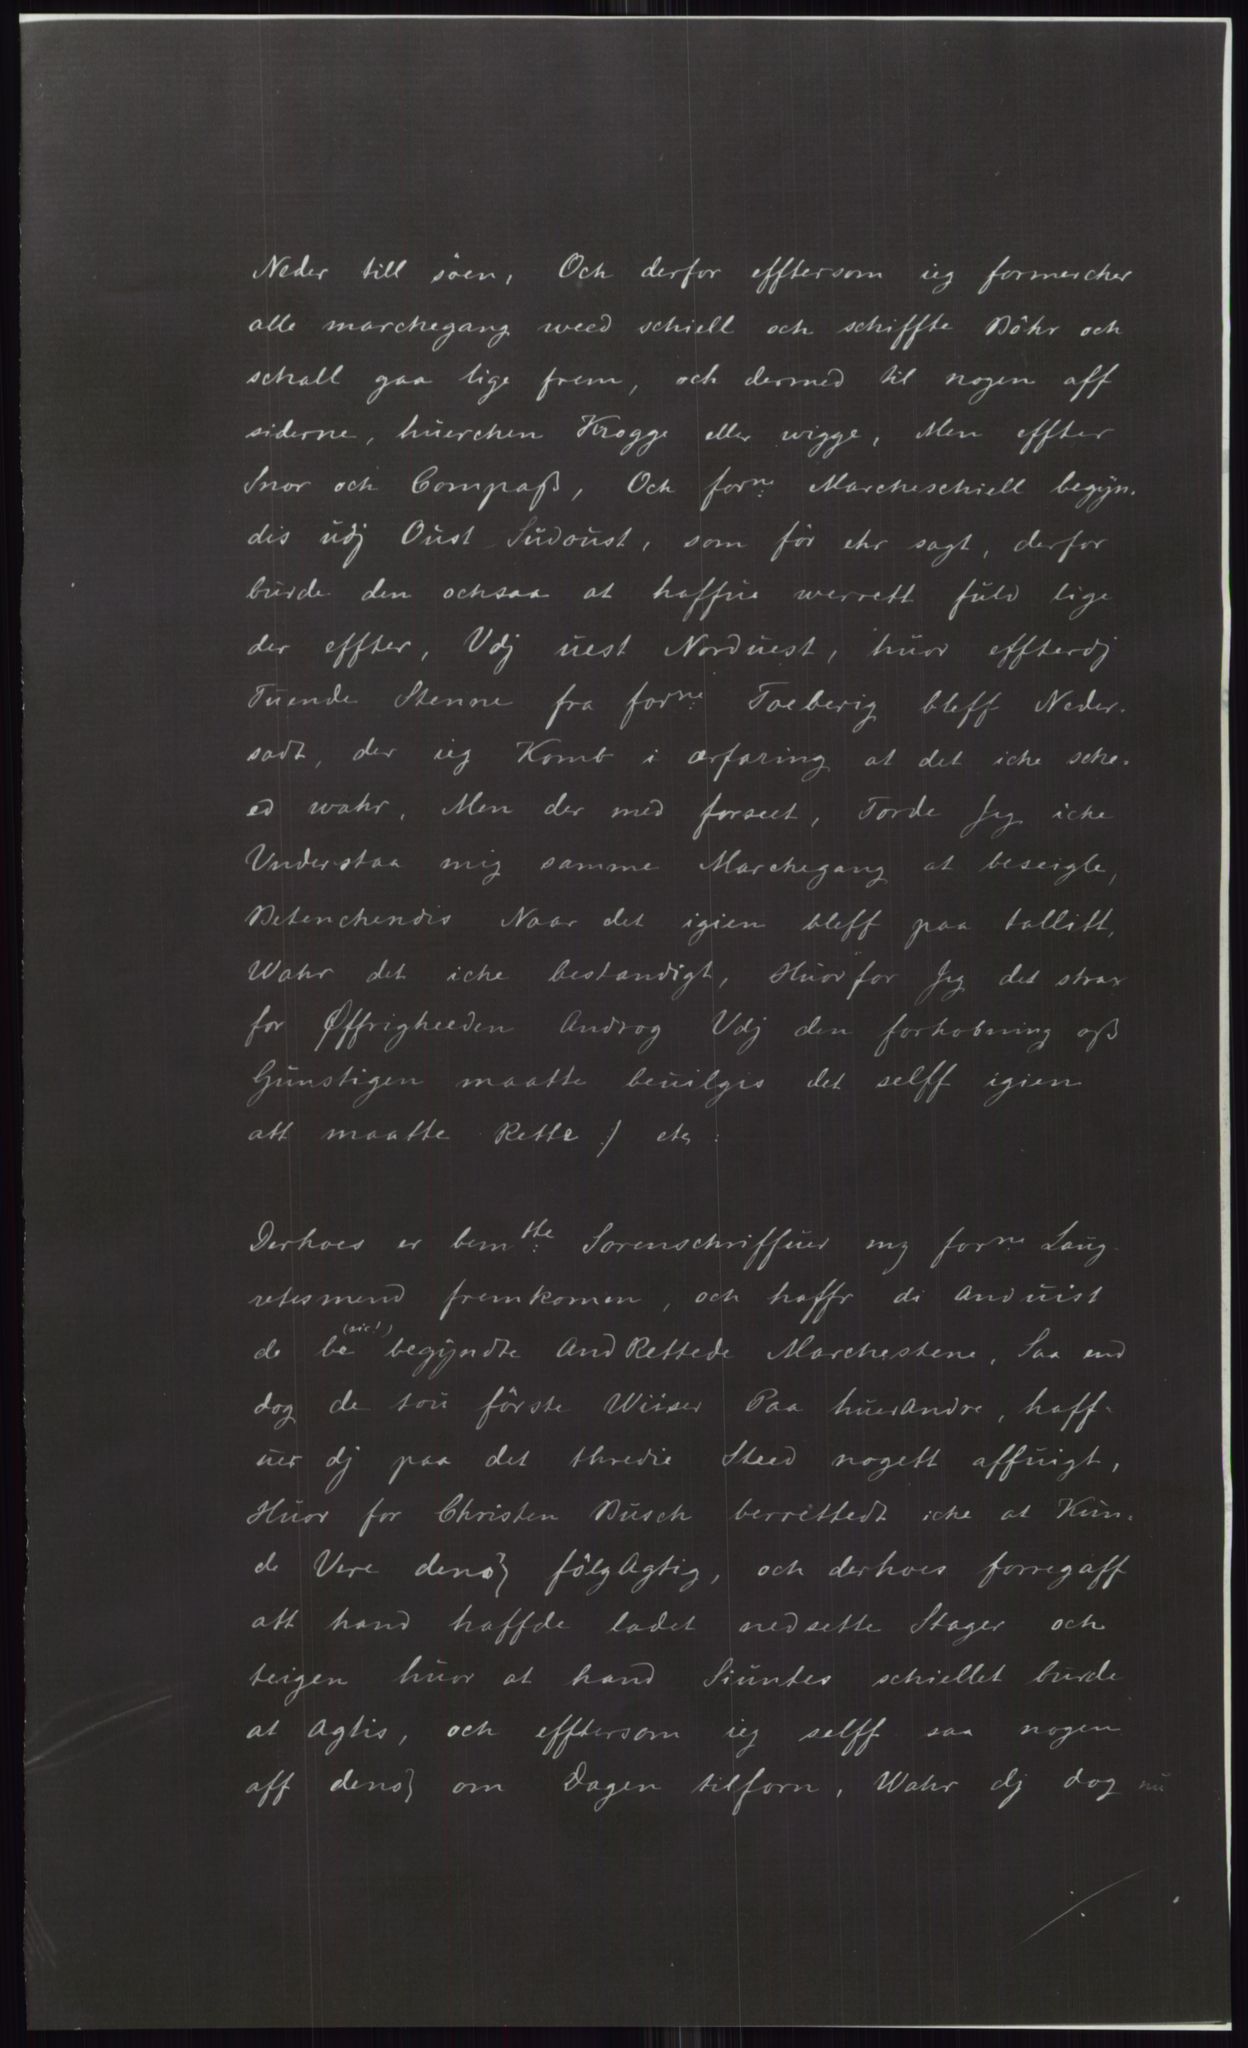 Neder till söen, Och derfor efftersom ieg formercher
alle marchegang weed schiell och schiffte Böhr och
schall gaa lige frem, och dermed til nogen aff
siderne, huerchen Krogge eller wigge, Men effter
Snor och Compaß, Och forne: Marcheschiell begyn-
dis udj Oust Sudoust, som för ehr sagt, derfor
burde den ochsaa at haffue werrett fuld lige
der effter, Udj uest Norduest, huor effterdj
Tuende Stenne fra forne: Taeberig bleff Neder-
sadt, der ieg Komb i erfaring at det iche sche-
ed wahr, Men der med forseet, Torde Jeg iche
Understaa mig samme Marchegang at beseigle,
Betenchendis Naar det igien bleff paa tallitt,
Wahr det iche bestandigt, Huor for Jeg det strax
for Øffrigheeden Androg Udj den forhobning oß
Gunstigen maatte beuilgis det selff igien
att maatte Rette / etc:
Derhoes er bemthe: Sorenschriffuer mz forne: Laug-
retesmend fremkomen, och haffr di Anduist
de be (sic!) begyndte And Rettede Marchestene, Saa end
dog de tou förste Wiiser Paa huerandre, haff-
uer dj paa det thredie Steed nogett affuigt,
Huor for Christen Busch berrettedt iche at Kun-
de Vere dend fölgAgtig, och derhoes forregaff
att hand haffde ladet nedsette Stager och
teigen huor at hand Siuntes schiellet burde
at Agtis, och efftersom ieg selff saa nogen
aff dend om Dagen tilforn, Wahr dj dog nu
./.